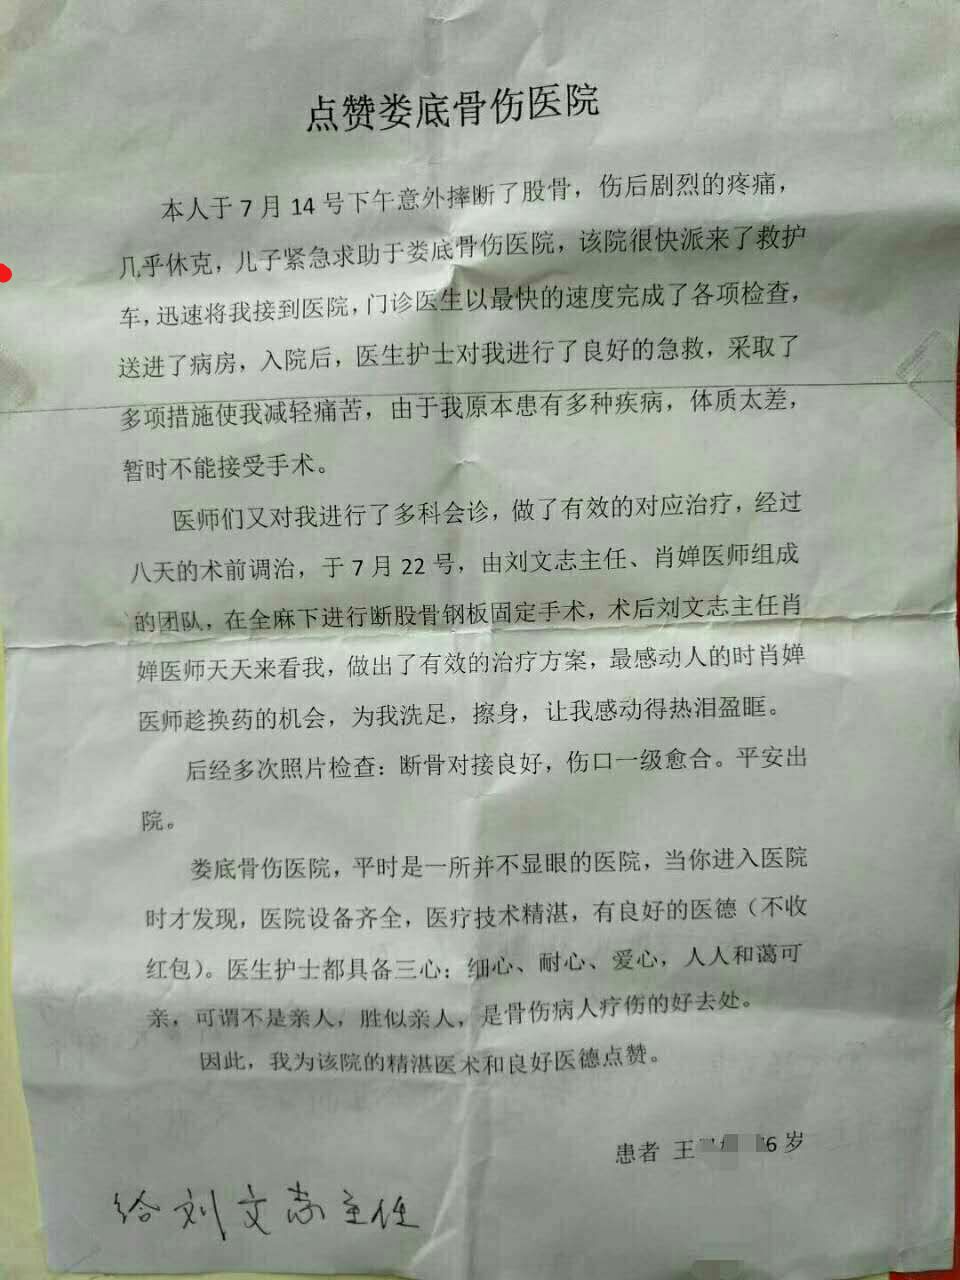 点赞娄底骨伤医院
本人于7月14号下午意外摔断了股骨，伤后剧烈的疼痛，
几乎休克，儿子紧急求助于娄底骨伤医院，该院很快派来了救护
车，迅速将我接到医院，门诊医生以最快的速度完成了各项检查，
送进了病房，入院后，医生护士对我进行了良好的急救，采取了
多项措施使我减轻痛苦，由于我原本患有多种疾病，体质太差，
暂时不能接受手术。
医师们又对我进行了多科会诊，做了有效的对应治疗，经过
八天的术前调治，于7月22号，由刘文志主任、肖婵医师组成
的团队，在全麻下进行断股骨钢板固定手术，术后刘文志主任肖
婵医师天天来看我，做出了有效的治疗方案，最感动人的时肖婵
医师趁换药的机会，为我洗足，擦身，让我感动得热泪盈眶。
后经多次照片检查：断骨对接良好，伤口一级愈合。平安出
院。
娄底骨伤医院，平时是一所并不显眼的医院，当你进入医院
时才发现，医院设备齐全，医疗技术精湛，有良好的医德（不收
红包）。医生护士都具备三心：细心、耐心、爱心，人人和蔼可
亲，可谓不是亲人，胜似亲人，是骨伤病人疗伤的好去处。
因此，我为该院的精湛医术和良好医德点赞。
患者 王 6岁
给刘文志主任